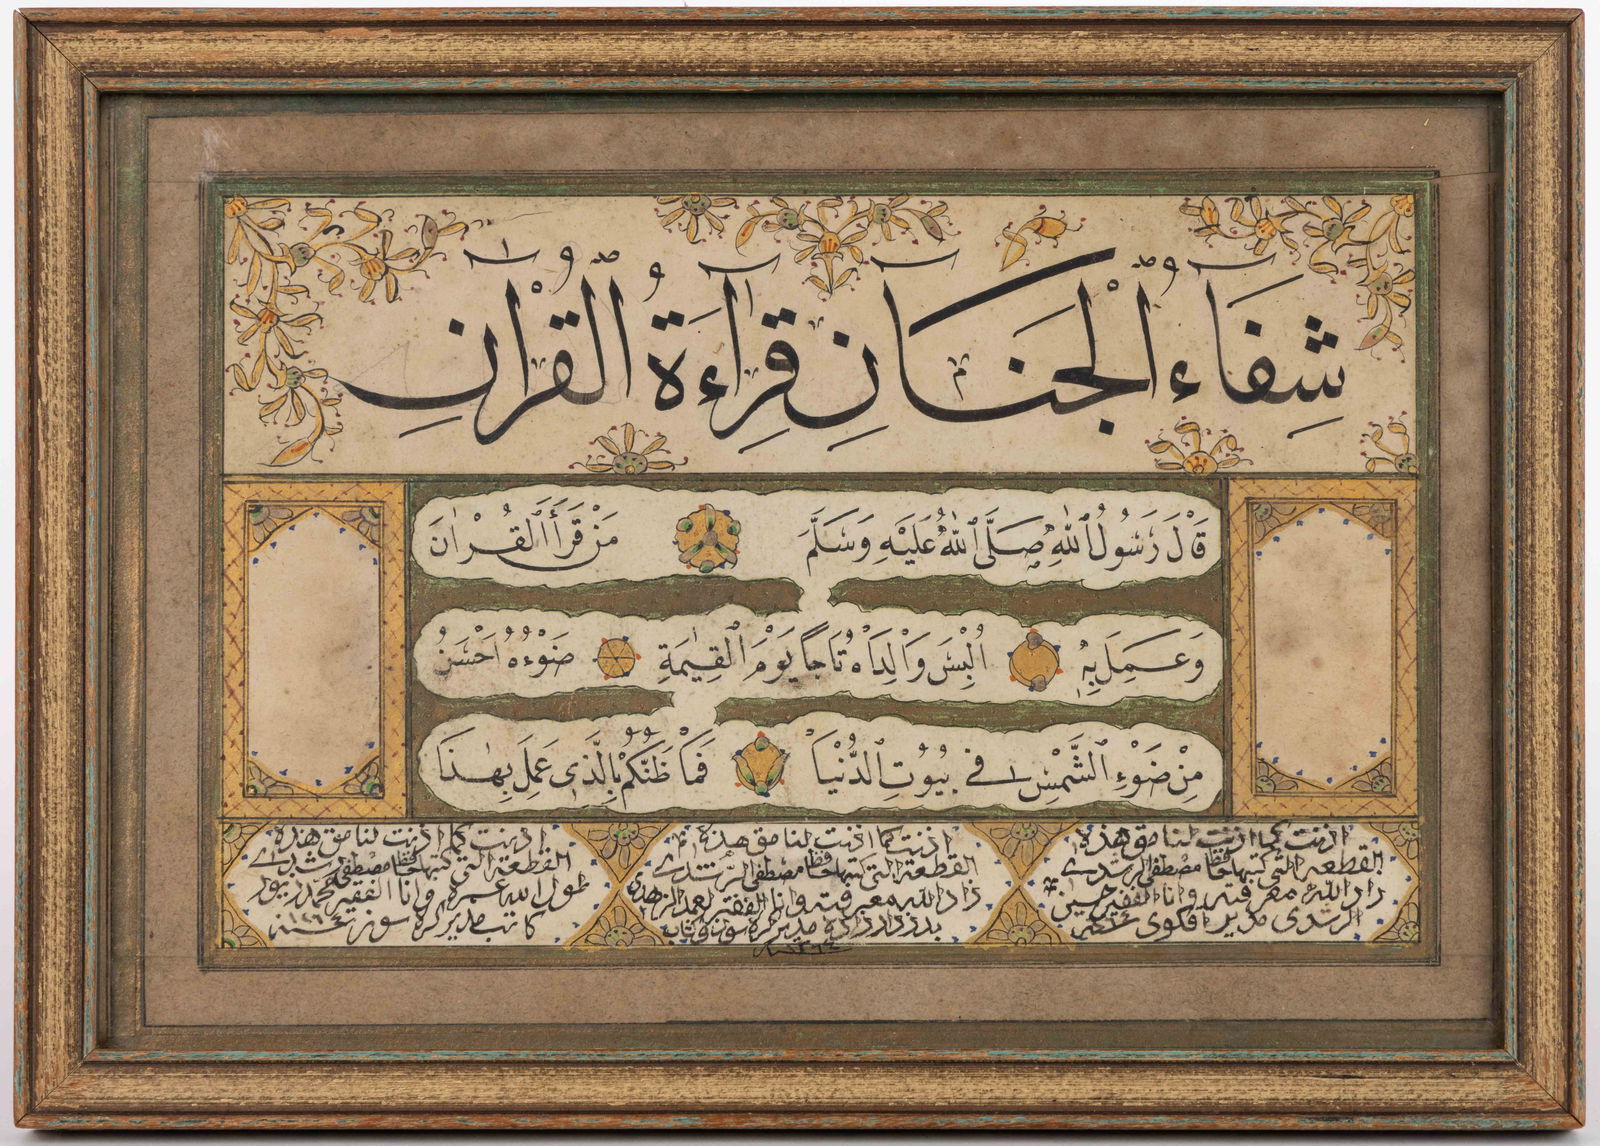 شِفَآءُ الْجَنَانِ قِرَآءَةُ الْقُرْاٰنِ
قَالَ رَسُولُ اللّٰهِ صَلَّى اللّٰهُ عَلَيْهِ وَسَلَّمَ مَنْ قَرَأَ الْقُرْاٰنَ
وَعَمِلَ بِهِ اُلْبِسَ وَالِدَاهُ تَاجًا يَوْمَ الْقِيٰمَةِ ضَوْءُهُ اَحْسَنُ
مِنْ ضَوْءِ الشَّمْسِ فِي بُيُوتِ الدُّنْيَا فَمَا ظَنُّكُمْ بِالَّذِي عَمِلَ بِهٰذَا
اذنت كما اذنت لنا مق هذه
القطعة التي كتبها حافظ مصطفى الرشدي
زاد الله معرفته وانا الفقير حسين
الرشدي
اذنت كما اذنت لنا مق هذه
القطعة التي كتبها حافظ مصطفى الرشدي
زاد الله معرفته وانا الفقير
اذنت كما اذنت لنا مق هذه
القطعة التي كتبها حافظ مصطفى رشدي
طول الله عمره وانا الفقير محمد
كاتب مدير كره سون سنة ١٢٦٤